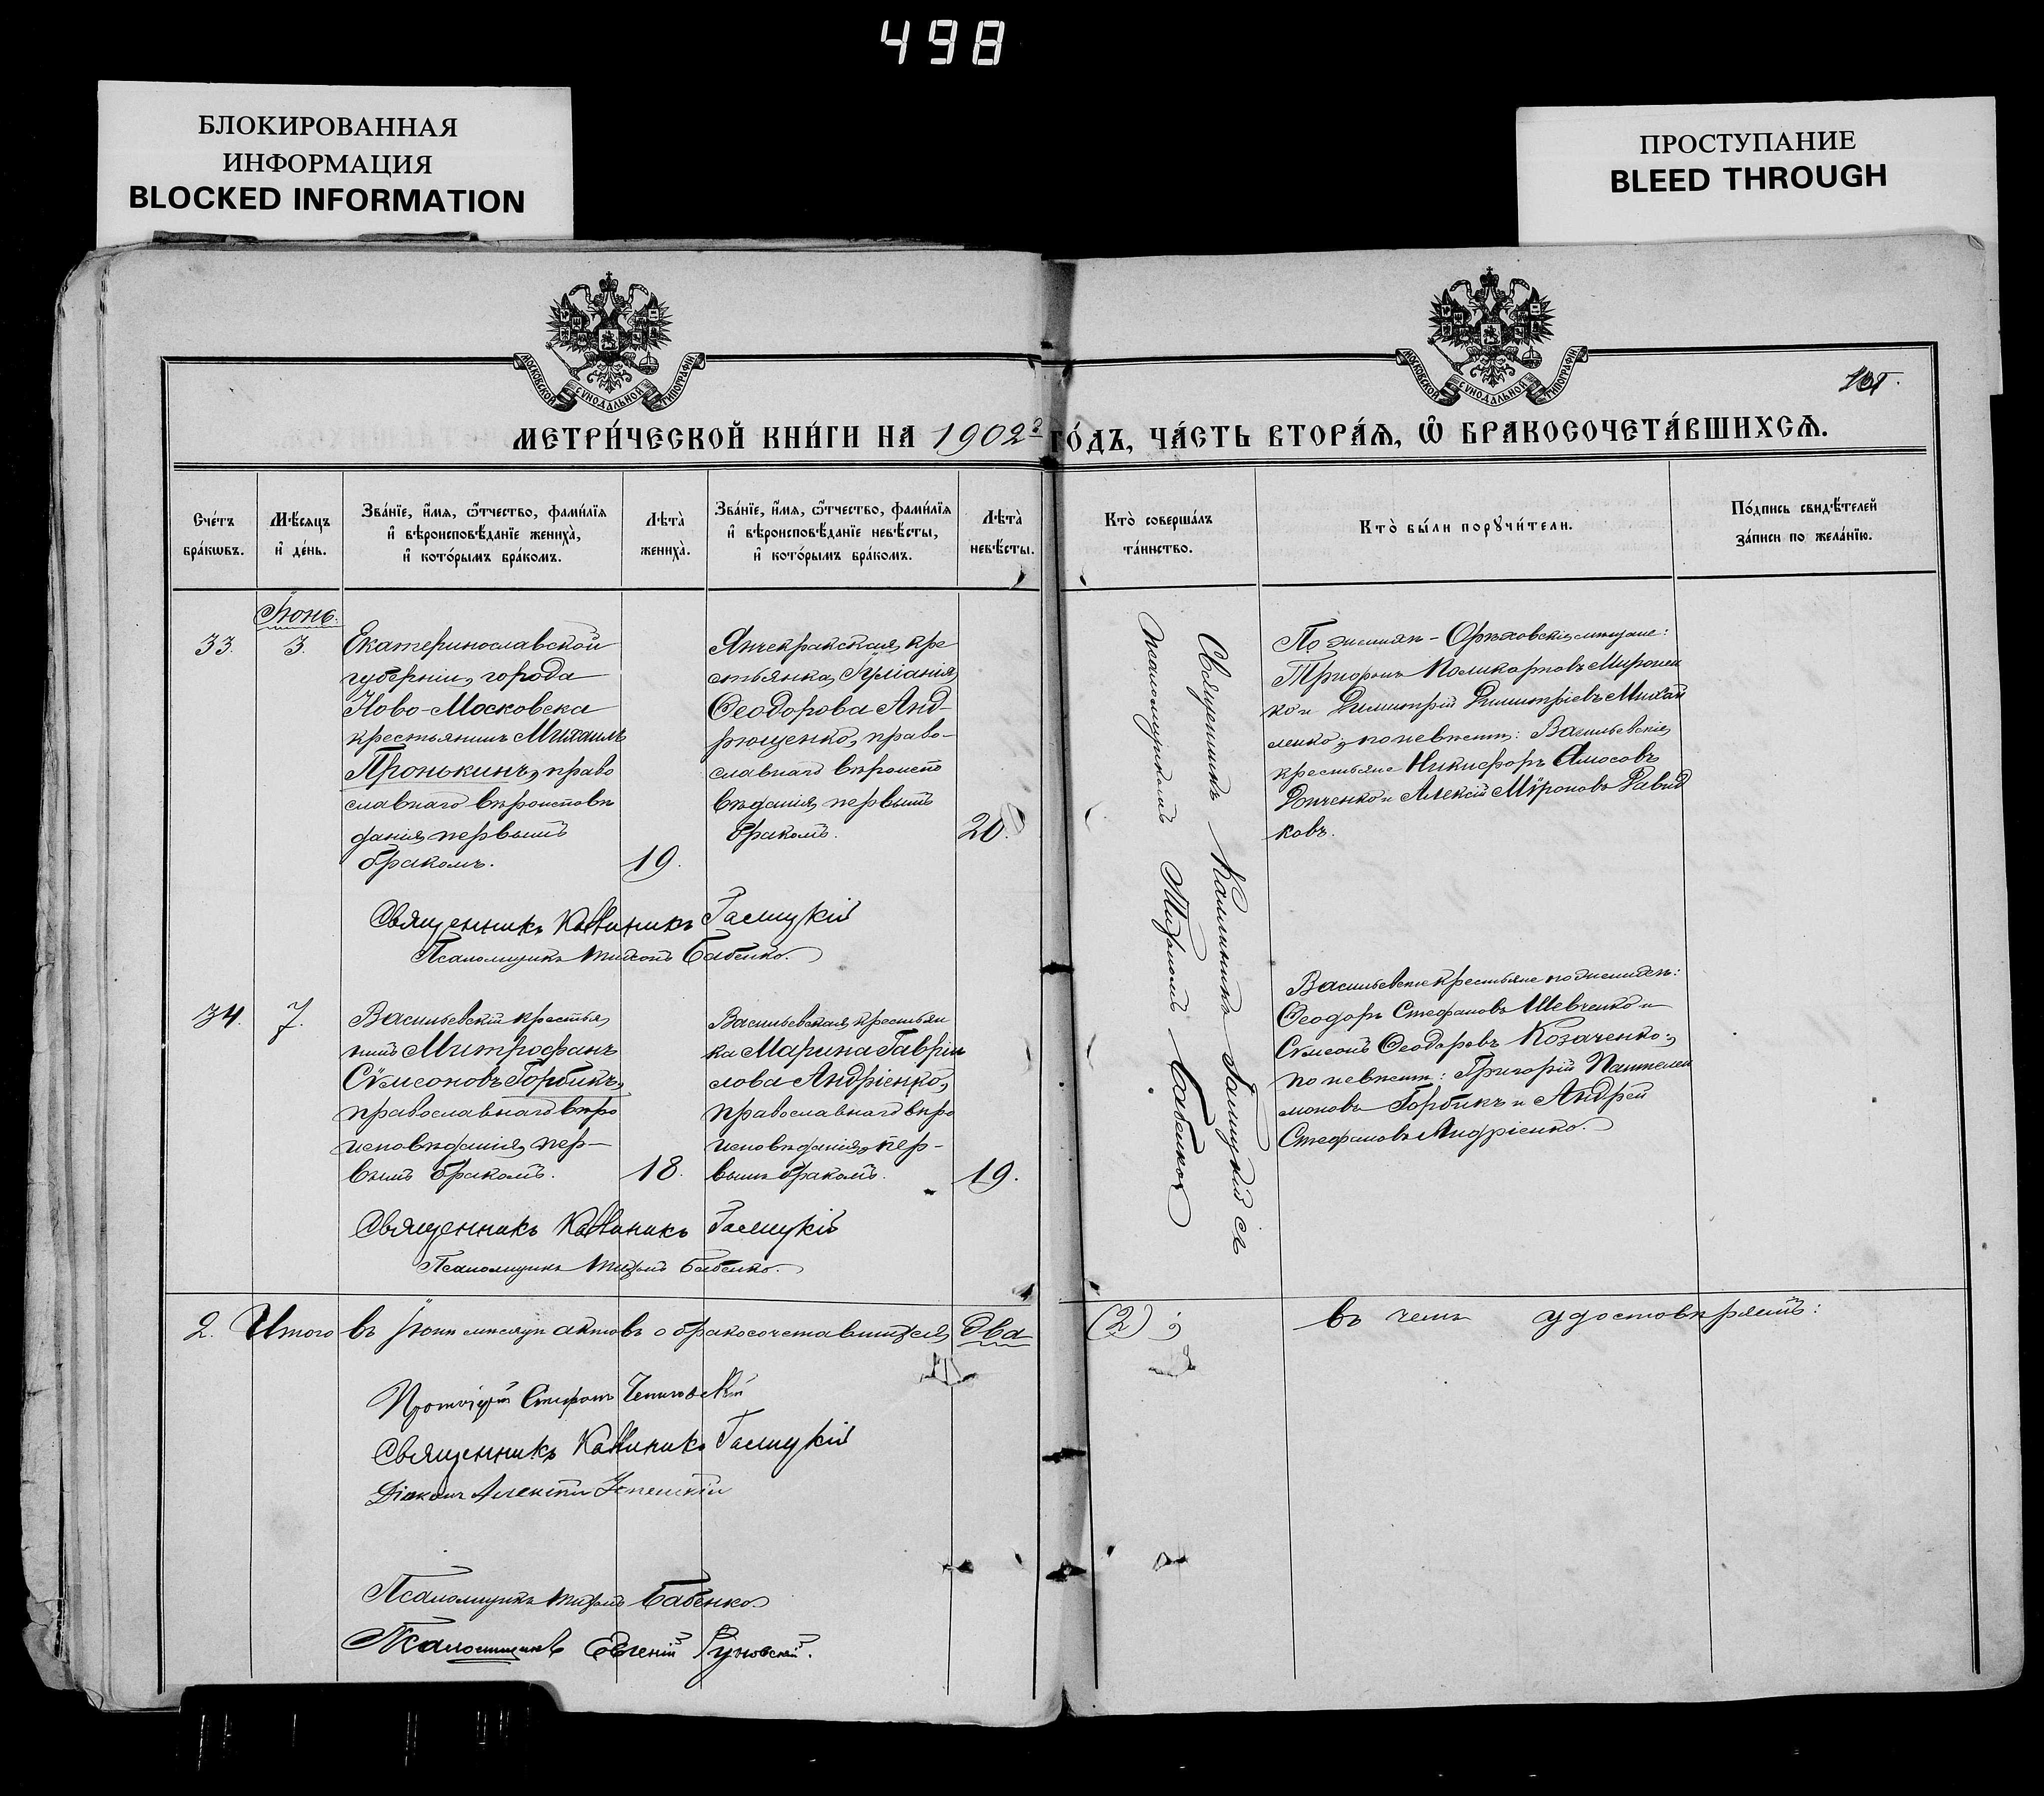 498
БЛОКИРОВАННАЯ
ИНФОРМАЦИЯ
BLOCKED INFORMATION
ПРОСТУПАНИЕ
BLEED THROUGH
МОСКОВСКОЙ СѴНОДАЛЬНОЙ ТИПОГРАФИИ
МОСКОВСКОЙ СѴНОДАЛЬНОЙ ТИПОГРАФИИ
МЕТРИ́ЧЕСКОЙ КНИ́ГИ НА 1902 ГО́ДЪ, ЧА́СТЬ ВТОРА́Ѧ, Ѽ БРАКОСОЧЕТА́ВШИХСѦ.
Сче́тъ
бра́кѡвъ.
Мѣ́сѧцъ
и҆ де́нь.
Зва́нїе, и҆́мѧ, ѻ҆́тчество, фами́лїѧ
и҆ вѣроисповѣ́данїе жениха̀,
и҆ кото́рымъ бра́комъ.
Лѣта̀
жениха̀.
Зва́нїе, и҆́мѧ, ѻ҆́тчество, фами́лїѧ
и҆ вѣроисповѣ́данїе невѣ́сты,
и҆ кото́рымъ бра́комъ.
Лѣта̀
невѣ́сты.
Кто̀ соверша́лъ
та́инство.
Кто̀ бы́ли порꙋчи́тели.
По́дпись свидѣ́телей
за́писи по жела́нїю.
Іюнь.
33.
3.
Екатеринославской
губерніи, города
Ново-Московска
крестьянинъ Михаилъ
Пронькинъ, право
славнаго вѣроисповѣ
данія, первымъ
бракомъ.
19.
Янчекракская кре
стьянка, Іуліанія
Ѳеодорова Анд-
рющенко, право-
славнаго вѣроиспо
вѣданія, первымъ
бракомъ.
20.
Священникъ Каллиникъ Галицкій съ
псаломщикомъ Тихономъ Бабенко
По женихѣ - Орѣховскіе мѣщане:
Трифонъ Поликарповъ Миронен
ко и Димитрій Димитріевъ Михай
ленко, по невѣстѣ: Васильевскіе
крестьяне Никифоръ Амосовъ
Алексій Мѵроновъ Давид
ковъ.
Священникъ Каллиникъ Галицкій
Псаломщикъ Тихонъ Бабенко.
34.
7.
Васильевскій крестья
нинъ Митрофанъ
Сѵмеоновъ Горбикъ,
православнаго вѣро
исповѣданія, пер-
вымъ бракомъ.
18.
Васильевская крестьян
ка Марина Гаврі
лова Андріенко,
православнаго вѣро
исповѣданія, пер-
вымъ бракомъ.
19.
Васильевскіе крестьяне по женихѣ:
Ѳеодоръ Стефановъ Шевченко и
Сѵмеонъ Ѳеодоровъ Козаченко;
по невѣстѣ: Григорій Пантелей
моновъ Горбикъ и Андрей
Стефановъ Андріенко.
Священникъ Каллиникъ Галицкій
Псаломщикъ Тихонъ Бабенко.
2. Итого въ Іюнѣ мѣсяцѣ актовъ о бракосочетавшихся два (2); въ чемъ удостовѣряемъ:
Протоіерей Стефанъ
Священникъ Каллиникъ Галицкій
Діаконъ Алексій
Псаломщикъ Тихонъ Бабенко
Псаломщикъ Евгеній